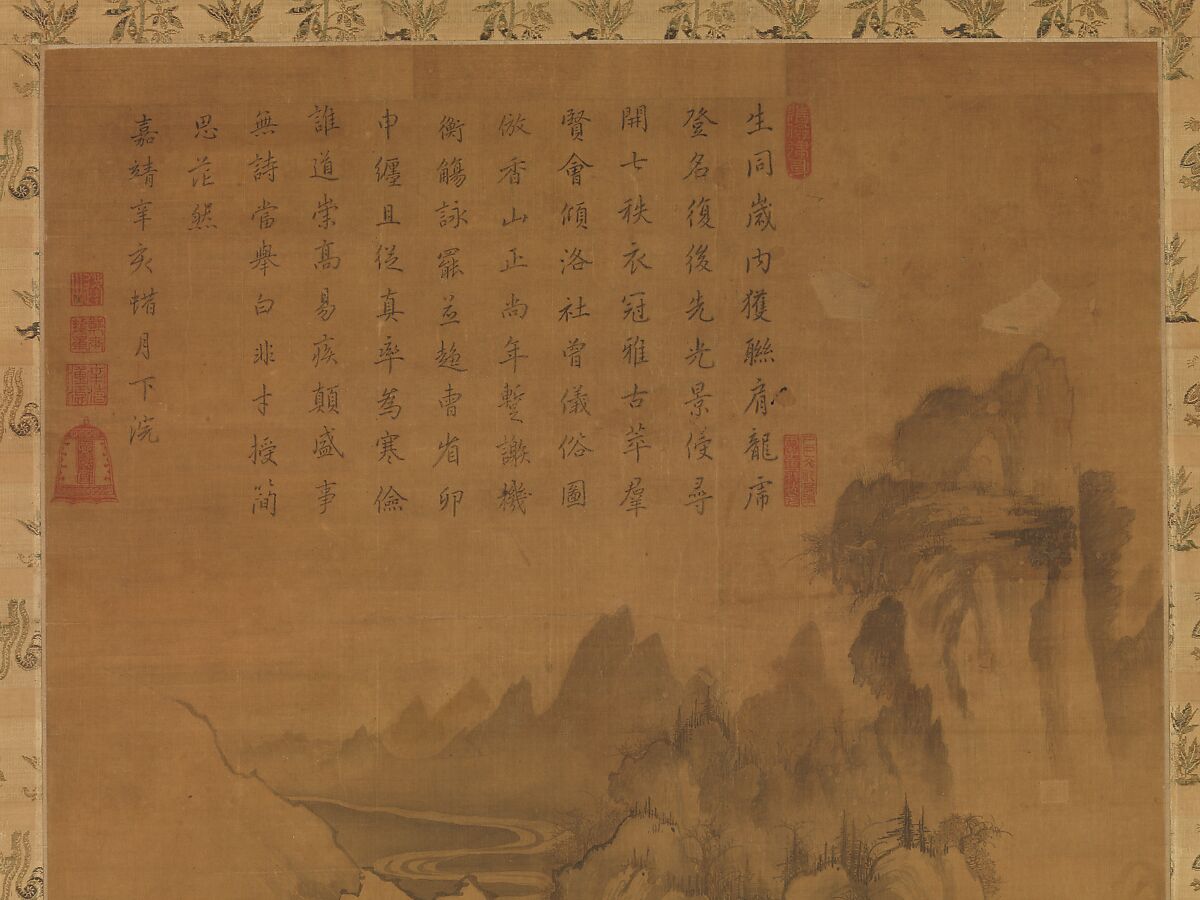 生同歲內獲聯肩龍虎
登名復後先光景侵尋
開七秩衣冠雅古萃羣
賢會傾洛社曾儀俗圖
倣香山正尚年暫謝機
衡觴詠罷並趨曹省卯
申纏且從真率爲寒儉
誰道崇高易疾顛盛事
無詩當舉白非才授簡
思茫然
嘉靖辛亥蜡月下浣